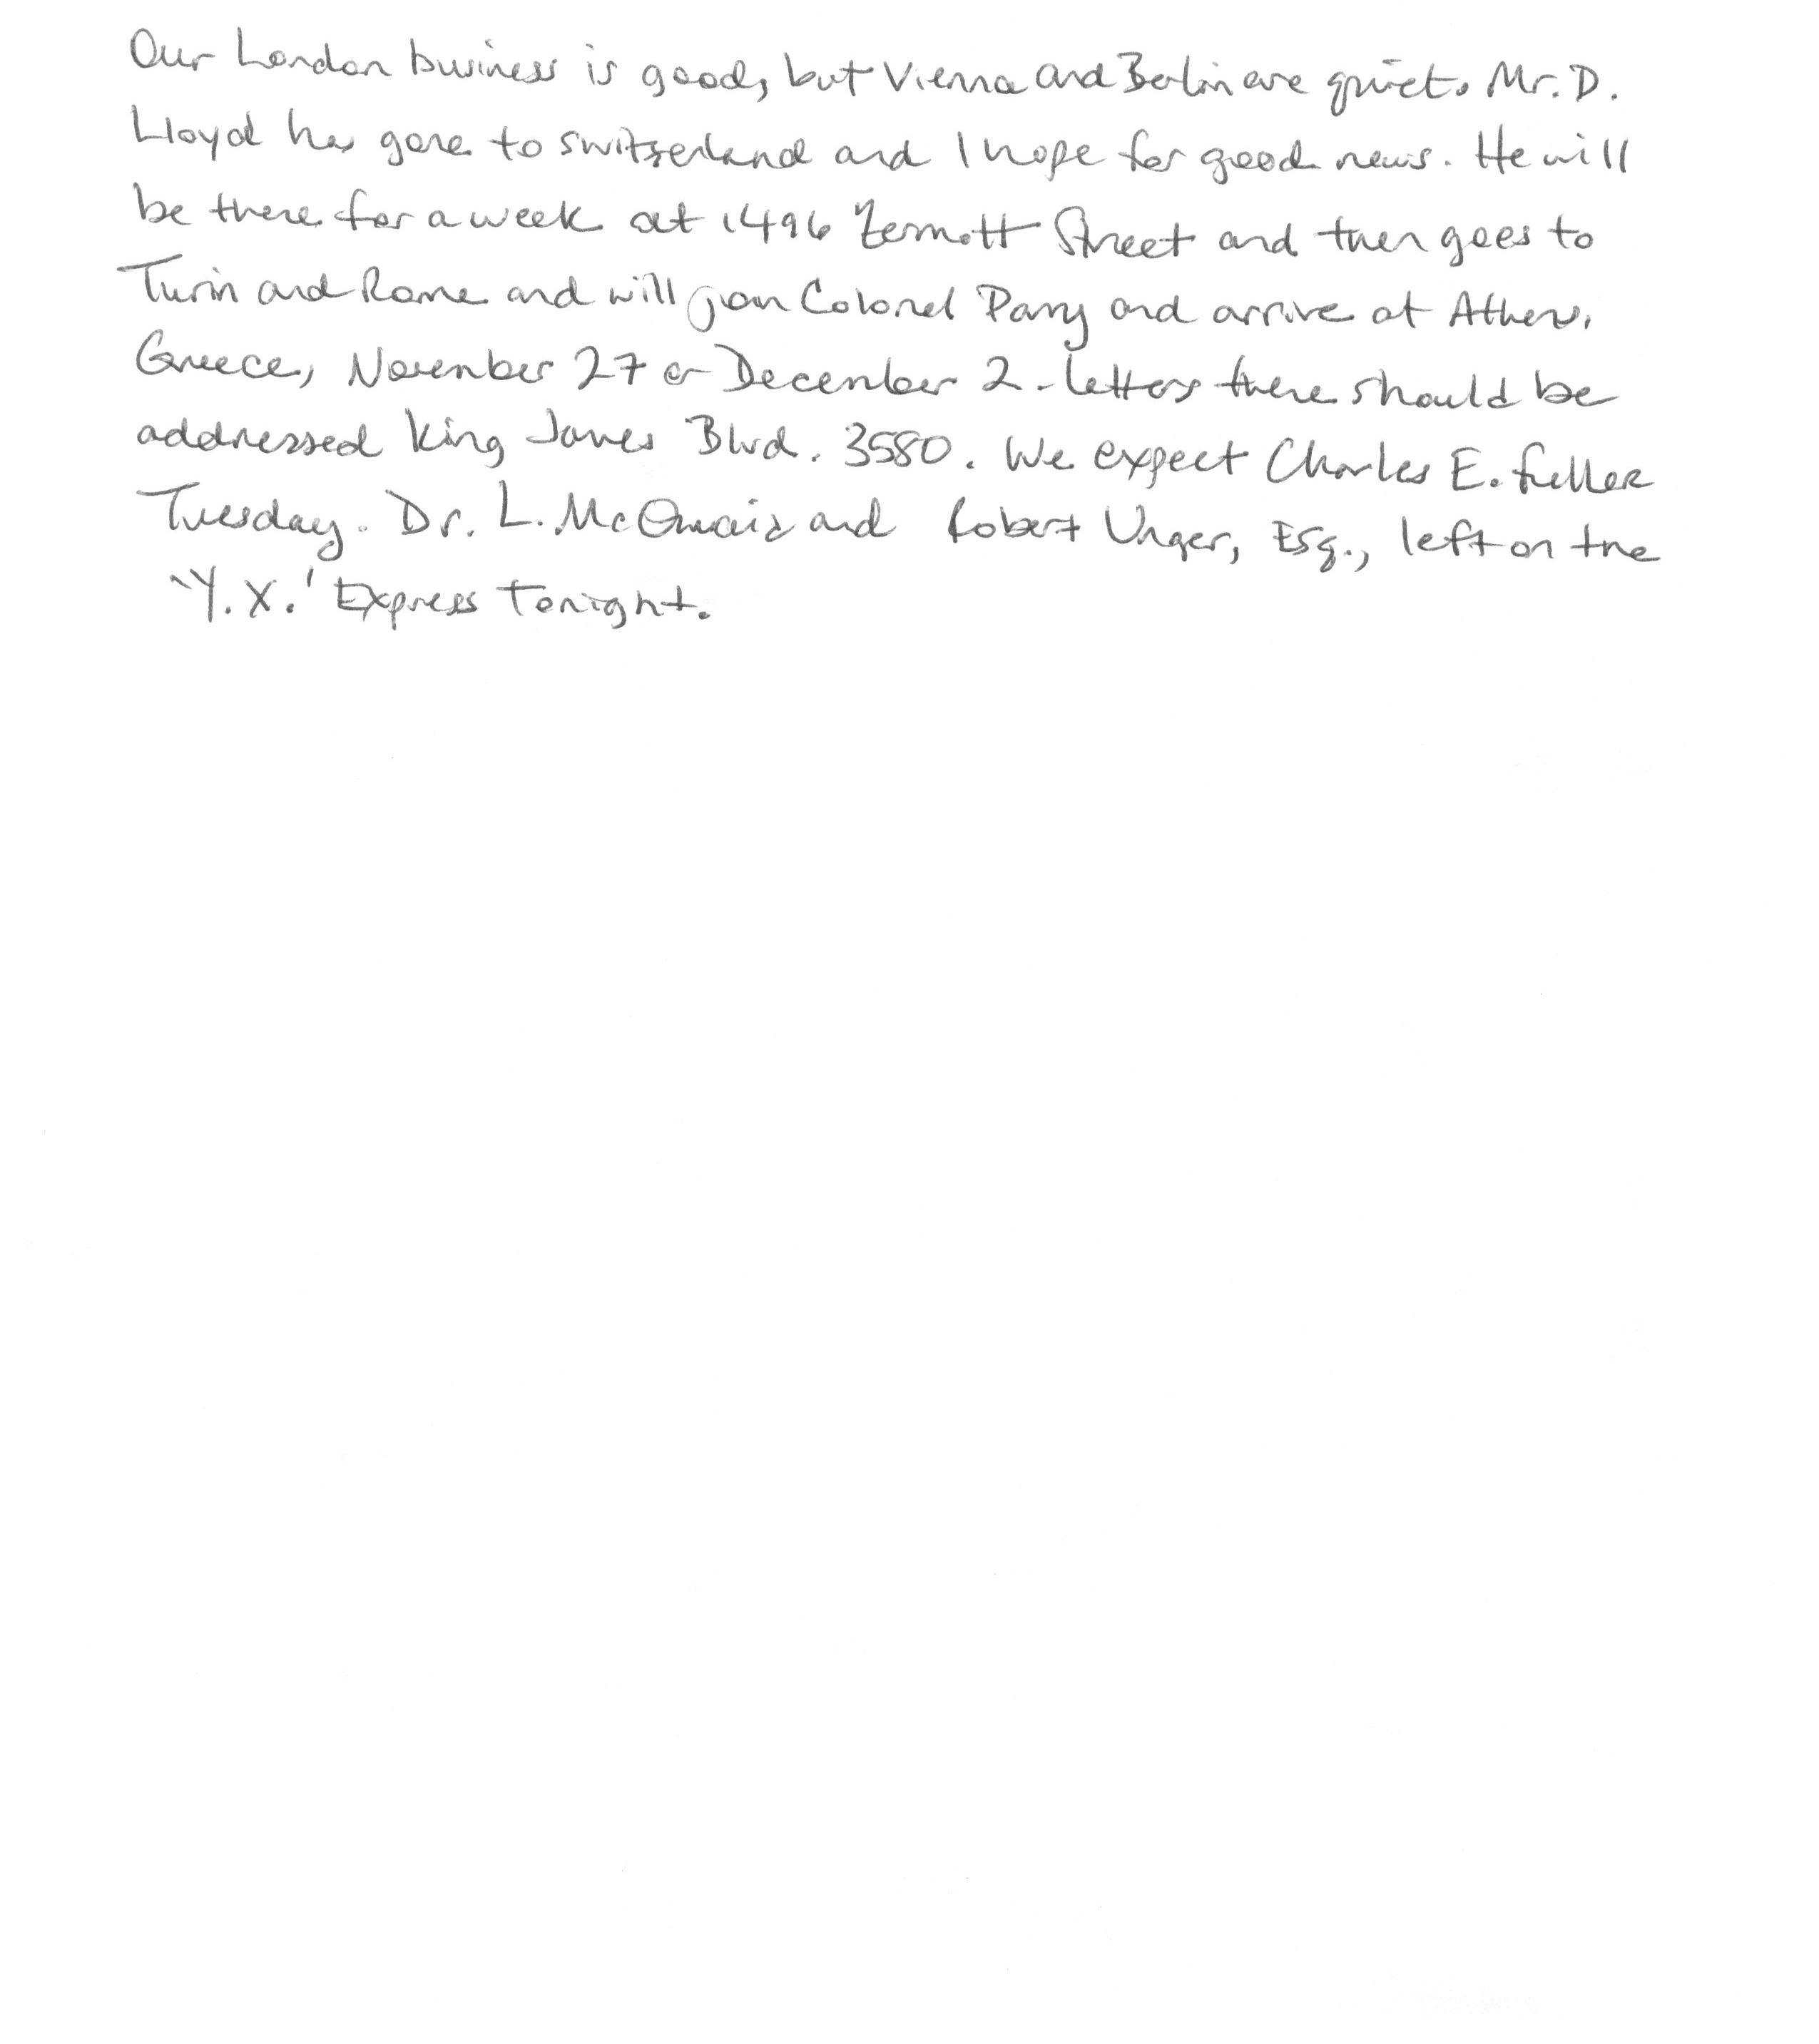 Our London business is good, but Vienna and Berlin are quiet. Mr. D.
Lloyd has gone to Switzerland and I hope for good news. He will
be there for a week at 1496 Zermott Street and then goes to
Turin and Rome and will join Colonel Parry and arrive at Athens,
Greece, November 27 or December 2. Letters there should be
addressed King James Blvd. 3580. We expect Charles E. Fuller
Tuesday. Dr. L. McQuaid and Robert Unger, Esq., left on the
'Y.X.' Express tonight.